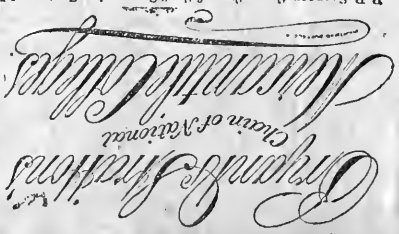 Bryant & Stratton's
Chain of National
Mercantile Colleges